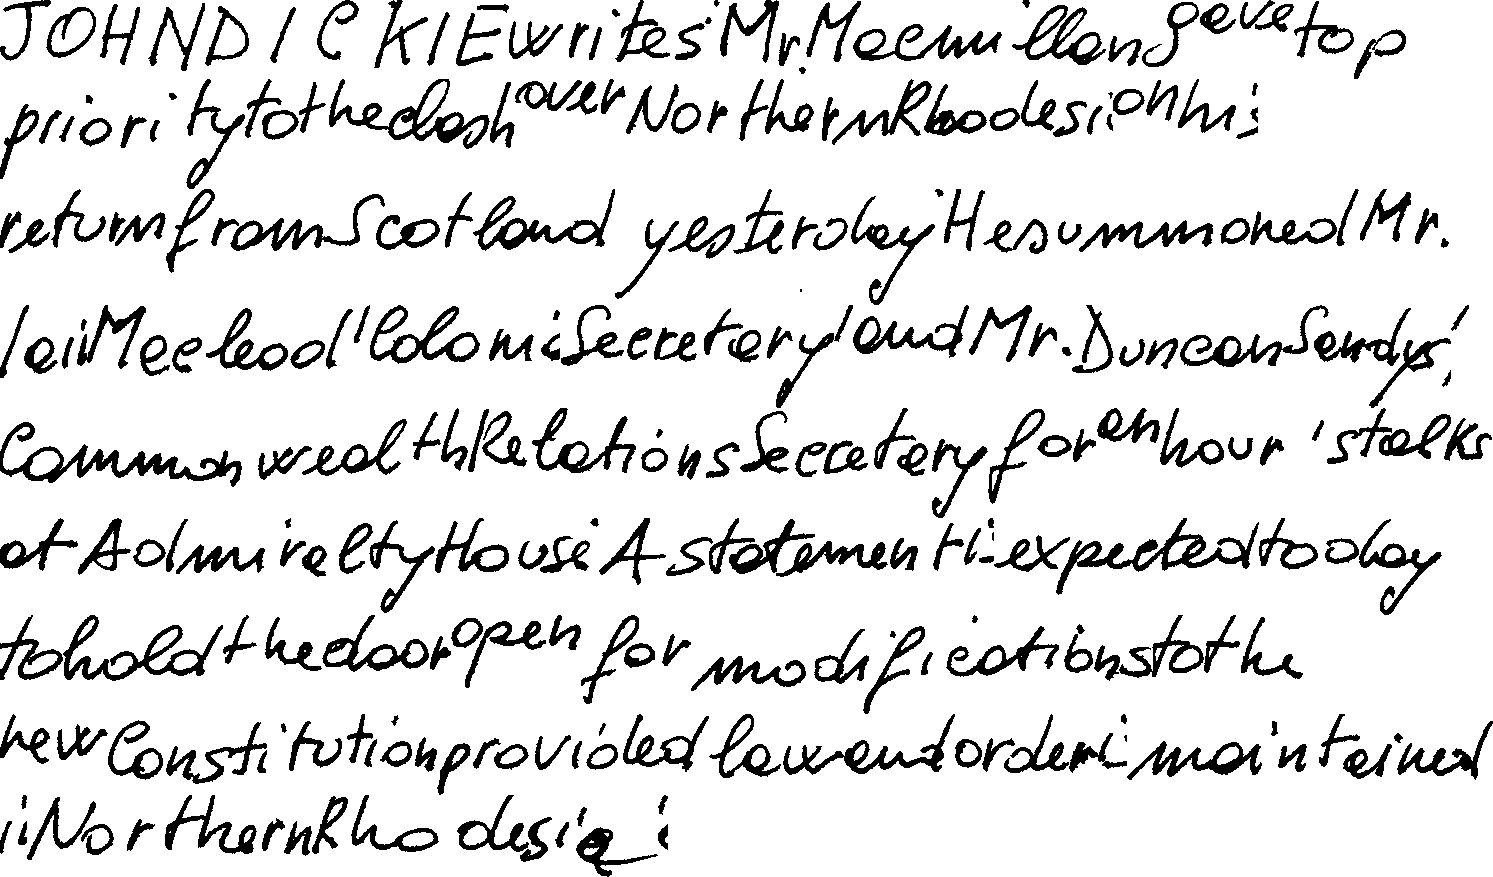 JOHN DICKIE writes: Mr. Macmillan gave top
priority to the clash over Northern Rhodesia on his
return from Scotland yesterday. He summoned Mr.
Iain Macleod, Colonial Secretary, and Mr. Duncan Sandys,
Commonwealth Relations Secretary, for an hour's talks
at Admiralty House. A statement is expected today
to hold the door open for modifications to the
new Constitution provided law and order is maintained
in Northern Rhodesia.